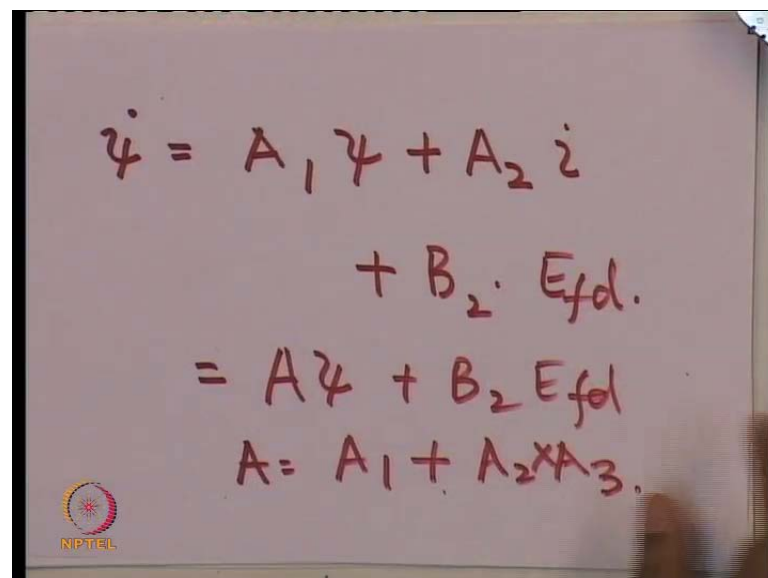 ψ̇ = A₁ψ + A₂ i
+ B₂. E_fd.
= Aψ + B₂ E_fd
A = A₁ + A₂ × A₃.
NPTEL